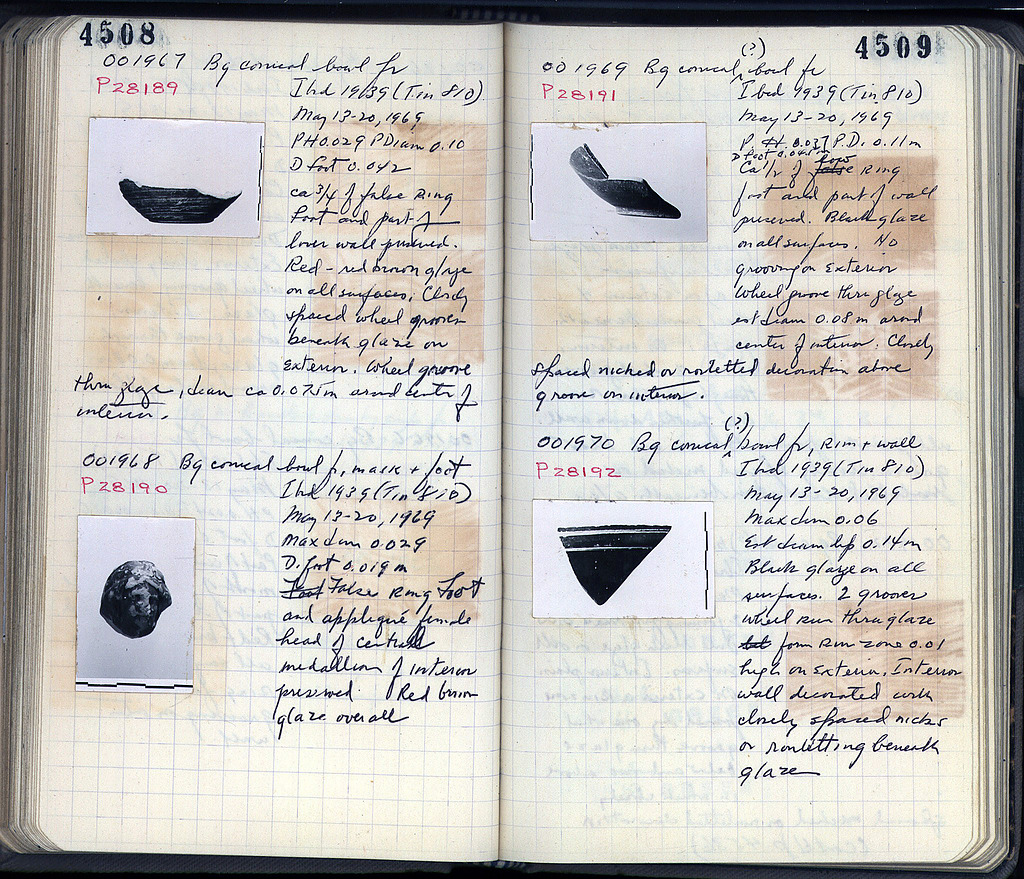 4508
001967 Bg conical bowl fr
P28189
I bd 1939 (Tin 810)
May 13-20, 1969
PH 0.029 P Diam 0.10
D foot 0.042
ca 3/4 of false ring
foot and part of
lower wall preserved.
Red - red brown glaze
on all surfaces. Closely
spaced wheel grooves
beneath glaze on
exterior. Wheel groove
thru glaze, diam ca 0.075m around center of
interior.
001968 Bg conical bowl fr, mask + foot
P28190
I bd 1939 (Tin 810)
May 13-20, 1969
Max dim 0.029
D. foot 0.019 m
Foot False Ring Foot
and appliqué female
head of central
medallion of interior
preserved. Red brown
glaze over all
4509
(?)
001969 Bg conical ‸ bowl fr
P28191
I bd 1939 (Tin 810)
May 13-20, 1969
P. H. 0.037 P.D. 0.11 m
D foot 0.045 m
low
Ca 1/2 of false Ring
foot and part of wall
preserved. Black glaze
on all surfaces. No
grooving on Exterior
Wheel groove thru glaze
est diam 0.08 m around
center of interior. Closely
spaced nicked or rouletted decoration above
groove on interior.
(?)
001970 Bg conical ‸ bowl fr, Rim + wall
P28192
I bd 1939 (Tin 810)
May 13-20, 1969
Max dim 0.06
Est diam lip 0.14 m
Black glaze on all
surfaces. 2 grooves
wheel run thru glaze
form Rim zone 0.01
high on Exterior. Interior
wall decorated with
closely spaced nicks
or rouletting beneath
glaze